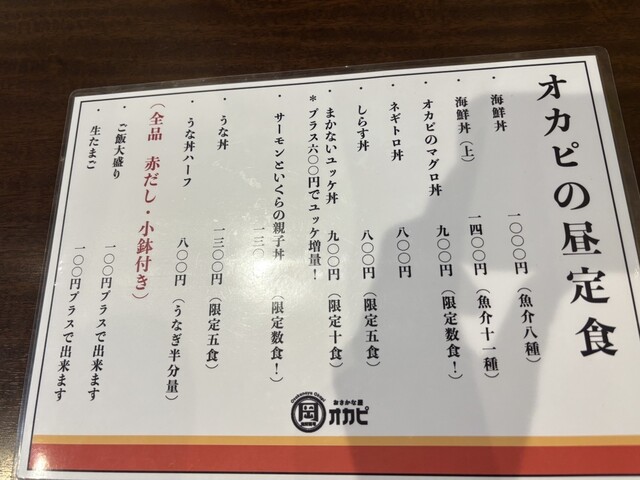 オカピの昼定食
・海鮮丼 一〇〇〇円（魚介八種）
・海鮮丼（上） 一四〇〇円（魚介十一種）
・オカピのマグロ丼 九〇〇円（限定数食！）
・ネギトロ丼 八〇〇円
・しらす丼 八〇〇円（限定五食）
・まかないユッケ丼 九〇〇円（限定十食）
＊プラス六〇〇円でユッケ増量！
・サーモンといくらの親子丼 一三〇 （限定数食！）
・うな丼 一三〇〇円（限定五食）
・うな丼ハーフ 八〇〇円（うなぎ半分量）
（全品 赤だし・小鉢付き）
・ご飯大盛り 一〇〇円プラスで出来ます
・生たまご 一〇〇円プラスで出来ます
岡
おさかな屋
オカピ